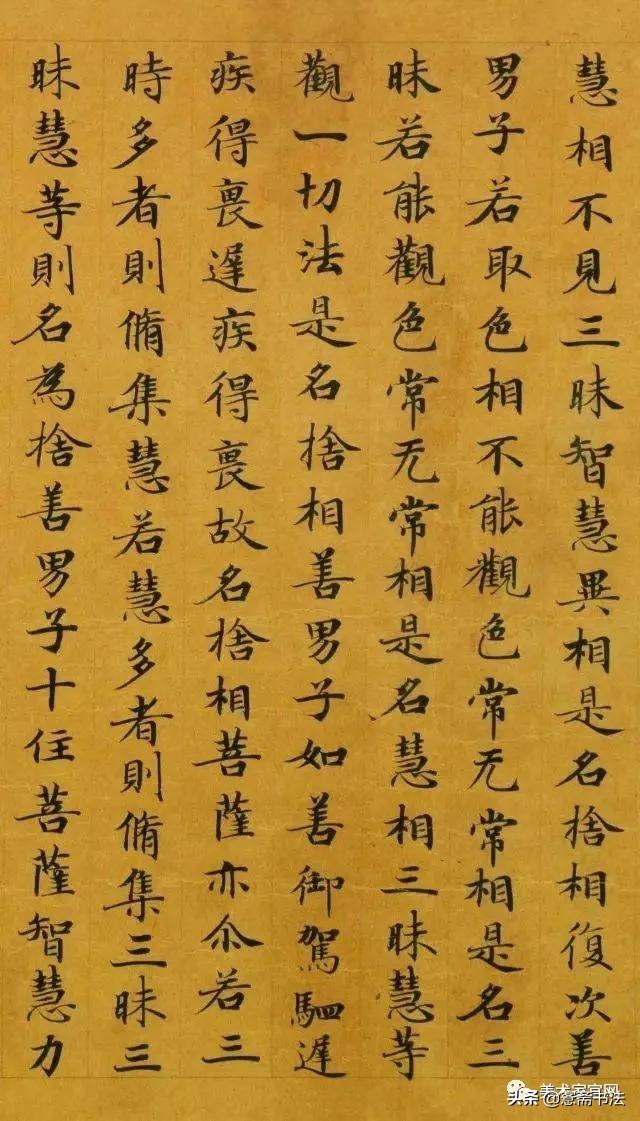 慧相不見三昧智慧異相是名捨相復次善
男子若取色相不能觀色常无常相是名三
昧若能觀色常无常相是名慧相三昧慧等
觀一切法是名捨相善男子如善御駕駟遲
疾得衷遲疾得衷故名捨相菩薩亦尒若三
時多者則脩集慧若慧多者則脩集三昧三
昧慧等則名為捨善男子十住菩薩智慧力
美术家官网
头条@愙斋书法